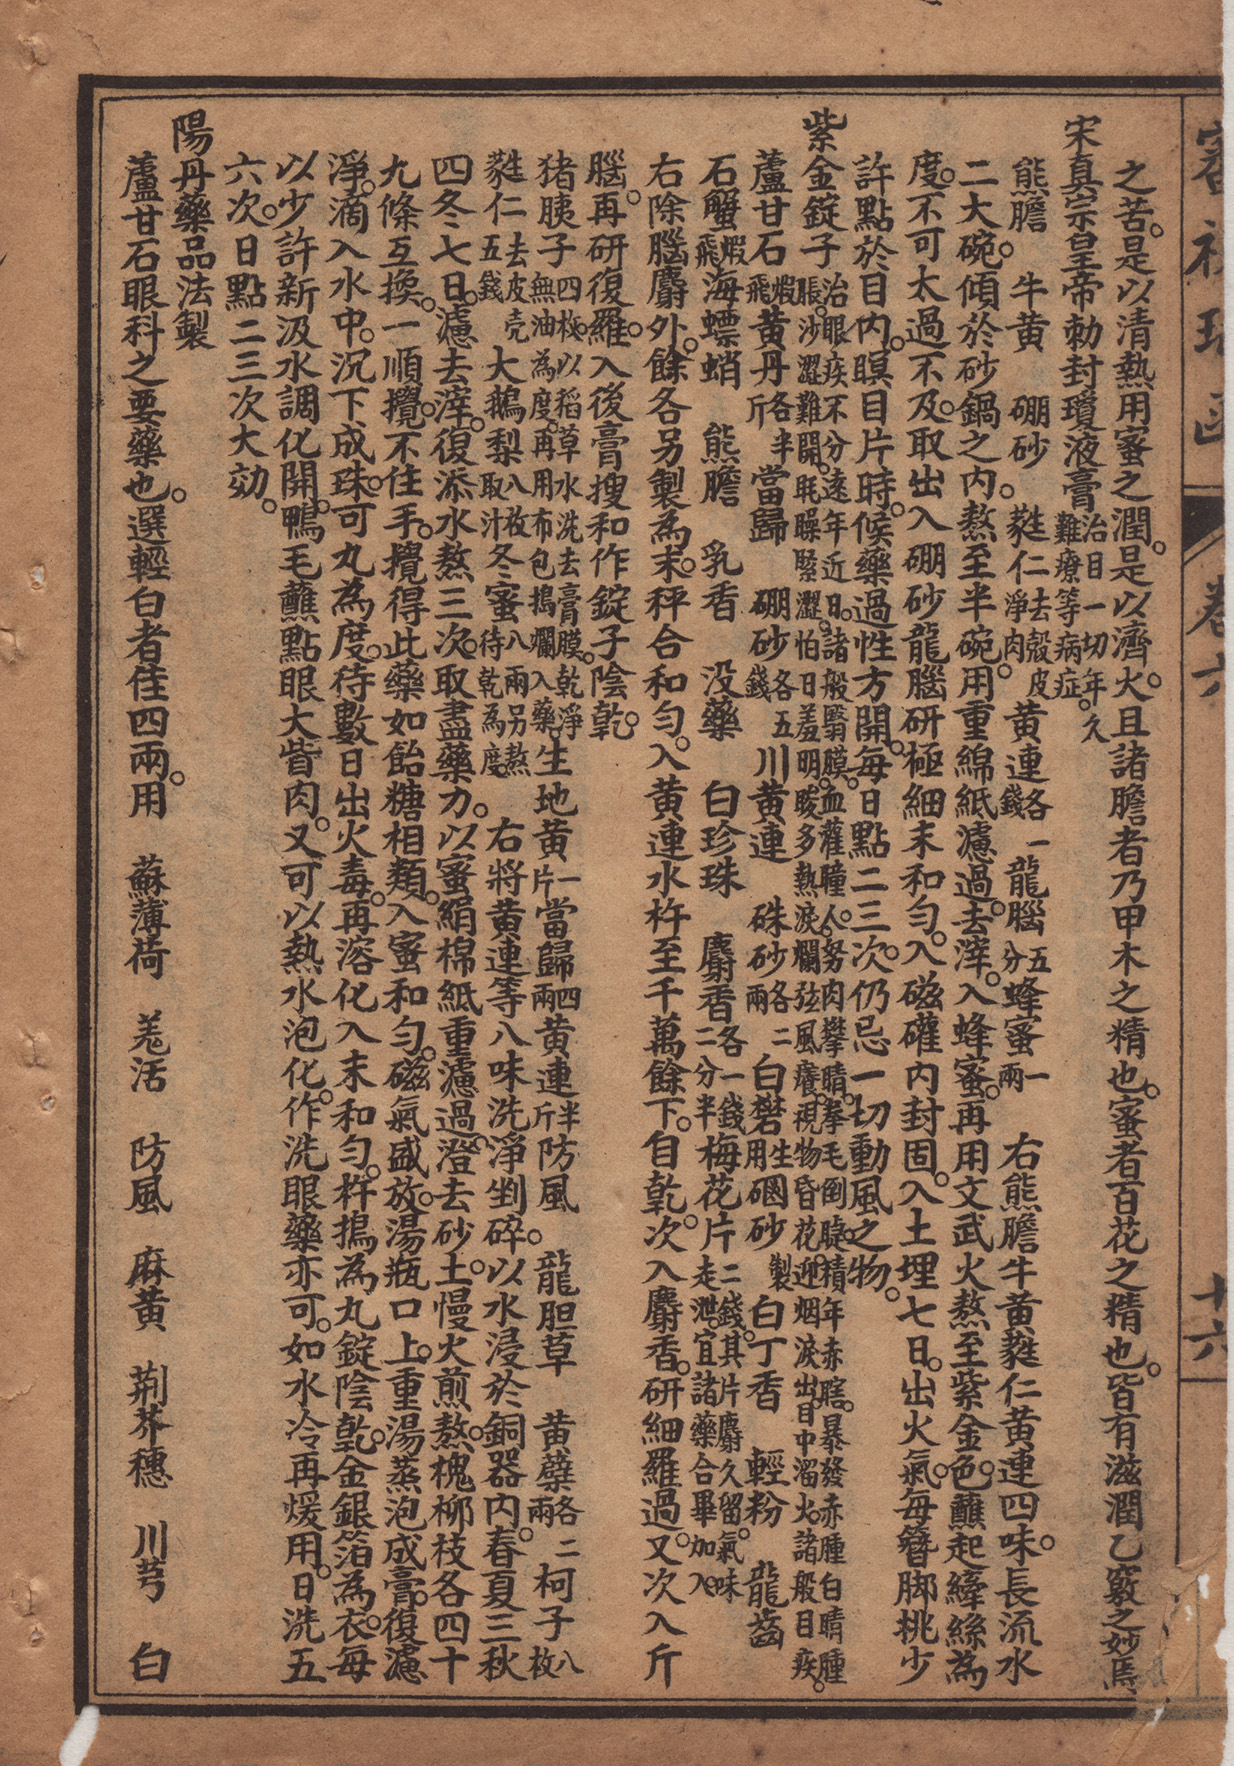 之苦。是以清熱用蜜之潤。是以濟火。且諸膽者乃甲木之精也。蜜者百花之精也。皆有滋潤乙竅之妙焉
宋真宗皇帝勅封瓊液膏治目一切年久難療等病症。
熊膽。 牛黄 硼砂。 蕤仁去殼皮淨肉。 黄連各一錢 龍腦五分 蜂蜜一兩 右熊膽牛黄蕤仁黄連四味。長流水
二大碗。傾於砂鍋之内。熬至半碗。用重綿紙濾過。去滓。入蜂蜜。再用文武火熬至紫金色。蘸起縴絲為
度。不可太過不及。取出入硼砂龍腦研極細末和匀。入磁礶内封固。入土埋七日。出火氣。每簪脚挑少
許點於目内。瞑目片時。候藥過性方開。每日點二三次。仍忌一切動風之物。
紫金錠子治眼疾不分遠年近日。諸般翳膜。血灌瞳人。努肉攀睛。拳毛倒睫。積年赤瞎。暴發赤腫白睛腫脹。沙澀難開。眊矂緊澀。怕日羞明。眵多熱淚。爛弦風癢。視物昏花。迎烟淚出。目中溜火。諸般目疾。
蘆甘石煅飛 黄丹各半斤 當歸 硼砂各五錢 川黄連 硃砂各二兩 白礬生用 硇砂製 白丁香 輕粉 龍齒
石蟹煅飛 海螵蛸 熊膽 乳香 没藥 白珍珠 麝香各一錢二分半 梅花片二錢。其片麝久留。氣味走泄。宜諸藥合畢加入。
右除腦麝外。餘各另製為末。秤合和匀。入黄連水杵至千萬餘下。自乾。次入麝香。研細羅過。又次入片
腦。再研復羅。入後膏搜和作錠子陰乾。
猪胰子四枚。以稻草水洗去膏膜。乾淨無油為度。再用布包搗爛入藥。 生地黄一斤 當歸四兩 黄連半斤 防風。 龍胆草 黄蘗各二兩 柯子八枚
蕤仁去皮壳五錢 大鵝梨八枚取汁 冬蜜八兩另熬待乾為度。 右將黄連等八味洗淨剉碎。以水浸於銅器内。春夏三秋
四冬七日。濾去滓。復添水熬三次。取盡藥力。以蜜絹棉紙重濾過。澄去砂土。慢火煎熬。槐柳枝各四十
九條互換。一順攪。不住手。攪得此藥如飴糖相類。入蜜和匀。磁氣盛。放湯瓶口上。重湯蒸泡成膏。復濾
淨。滴入水中。沉下成珠。可丸為度。待數日出火毒。再溶化入末和匀。杵搗為丸錠陰乾。金銀箔為衣。每
以少許新汲水調化開。鴨毛蘸點眼大眥肉。又可以熱水泡化。作洗眼藥亦可。如水冷再煖用。日洗五
六次。日點二三次大効。
陽丹藥品法製
蘆甘石眼科之要藥也。選輕白者佳四兩。用 蘇薄荷 羗活 防風 麻黄 荆芥穗 川芎 白
卷六
十六